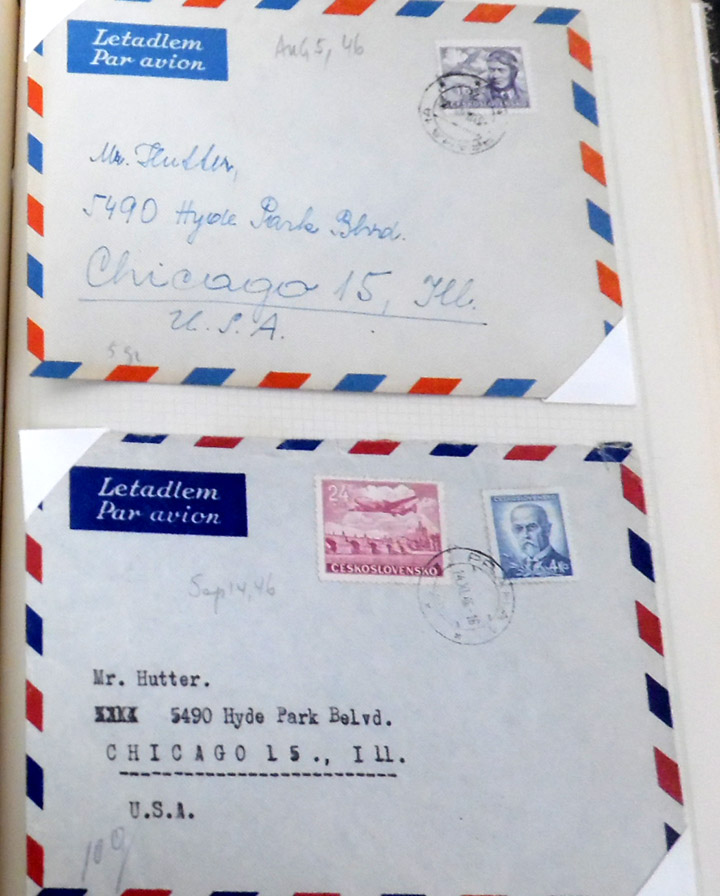 Letadlem
Par avion
Aug 5, 46
Mr. Hutter,
5490 Hyde Park Blvd.
Chicago 15, Ill.
U.S.A.
Letadlem
Par avion
24
ČESKOSLOVENSKO
ČESKOSLOVENSKO
Sept 14, 46
Mr. Hutter.
XXXX 5490 Hyde Park Belvd.
CHICAGO 15., Ill.
U.S.A.